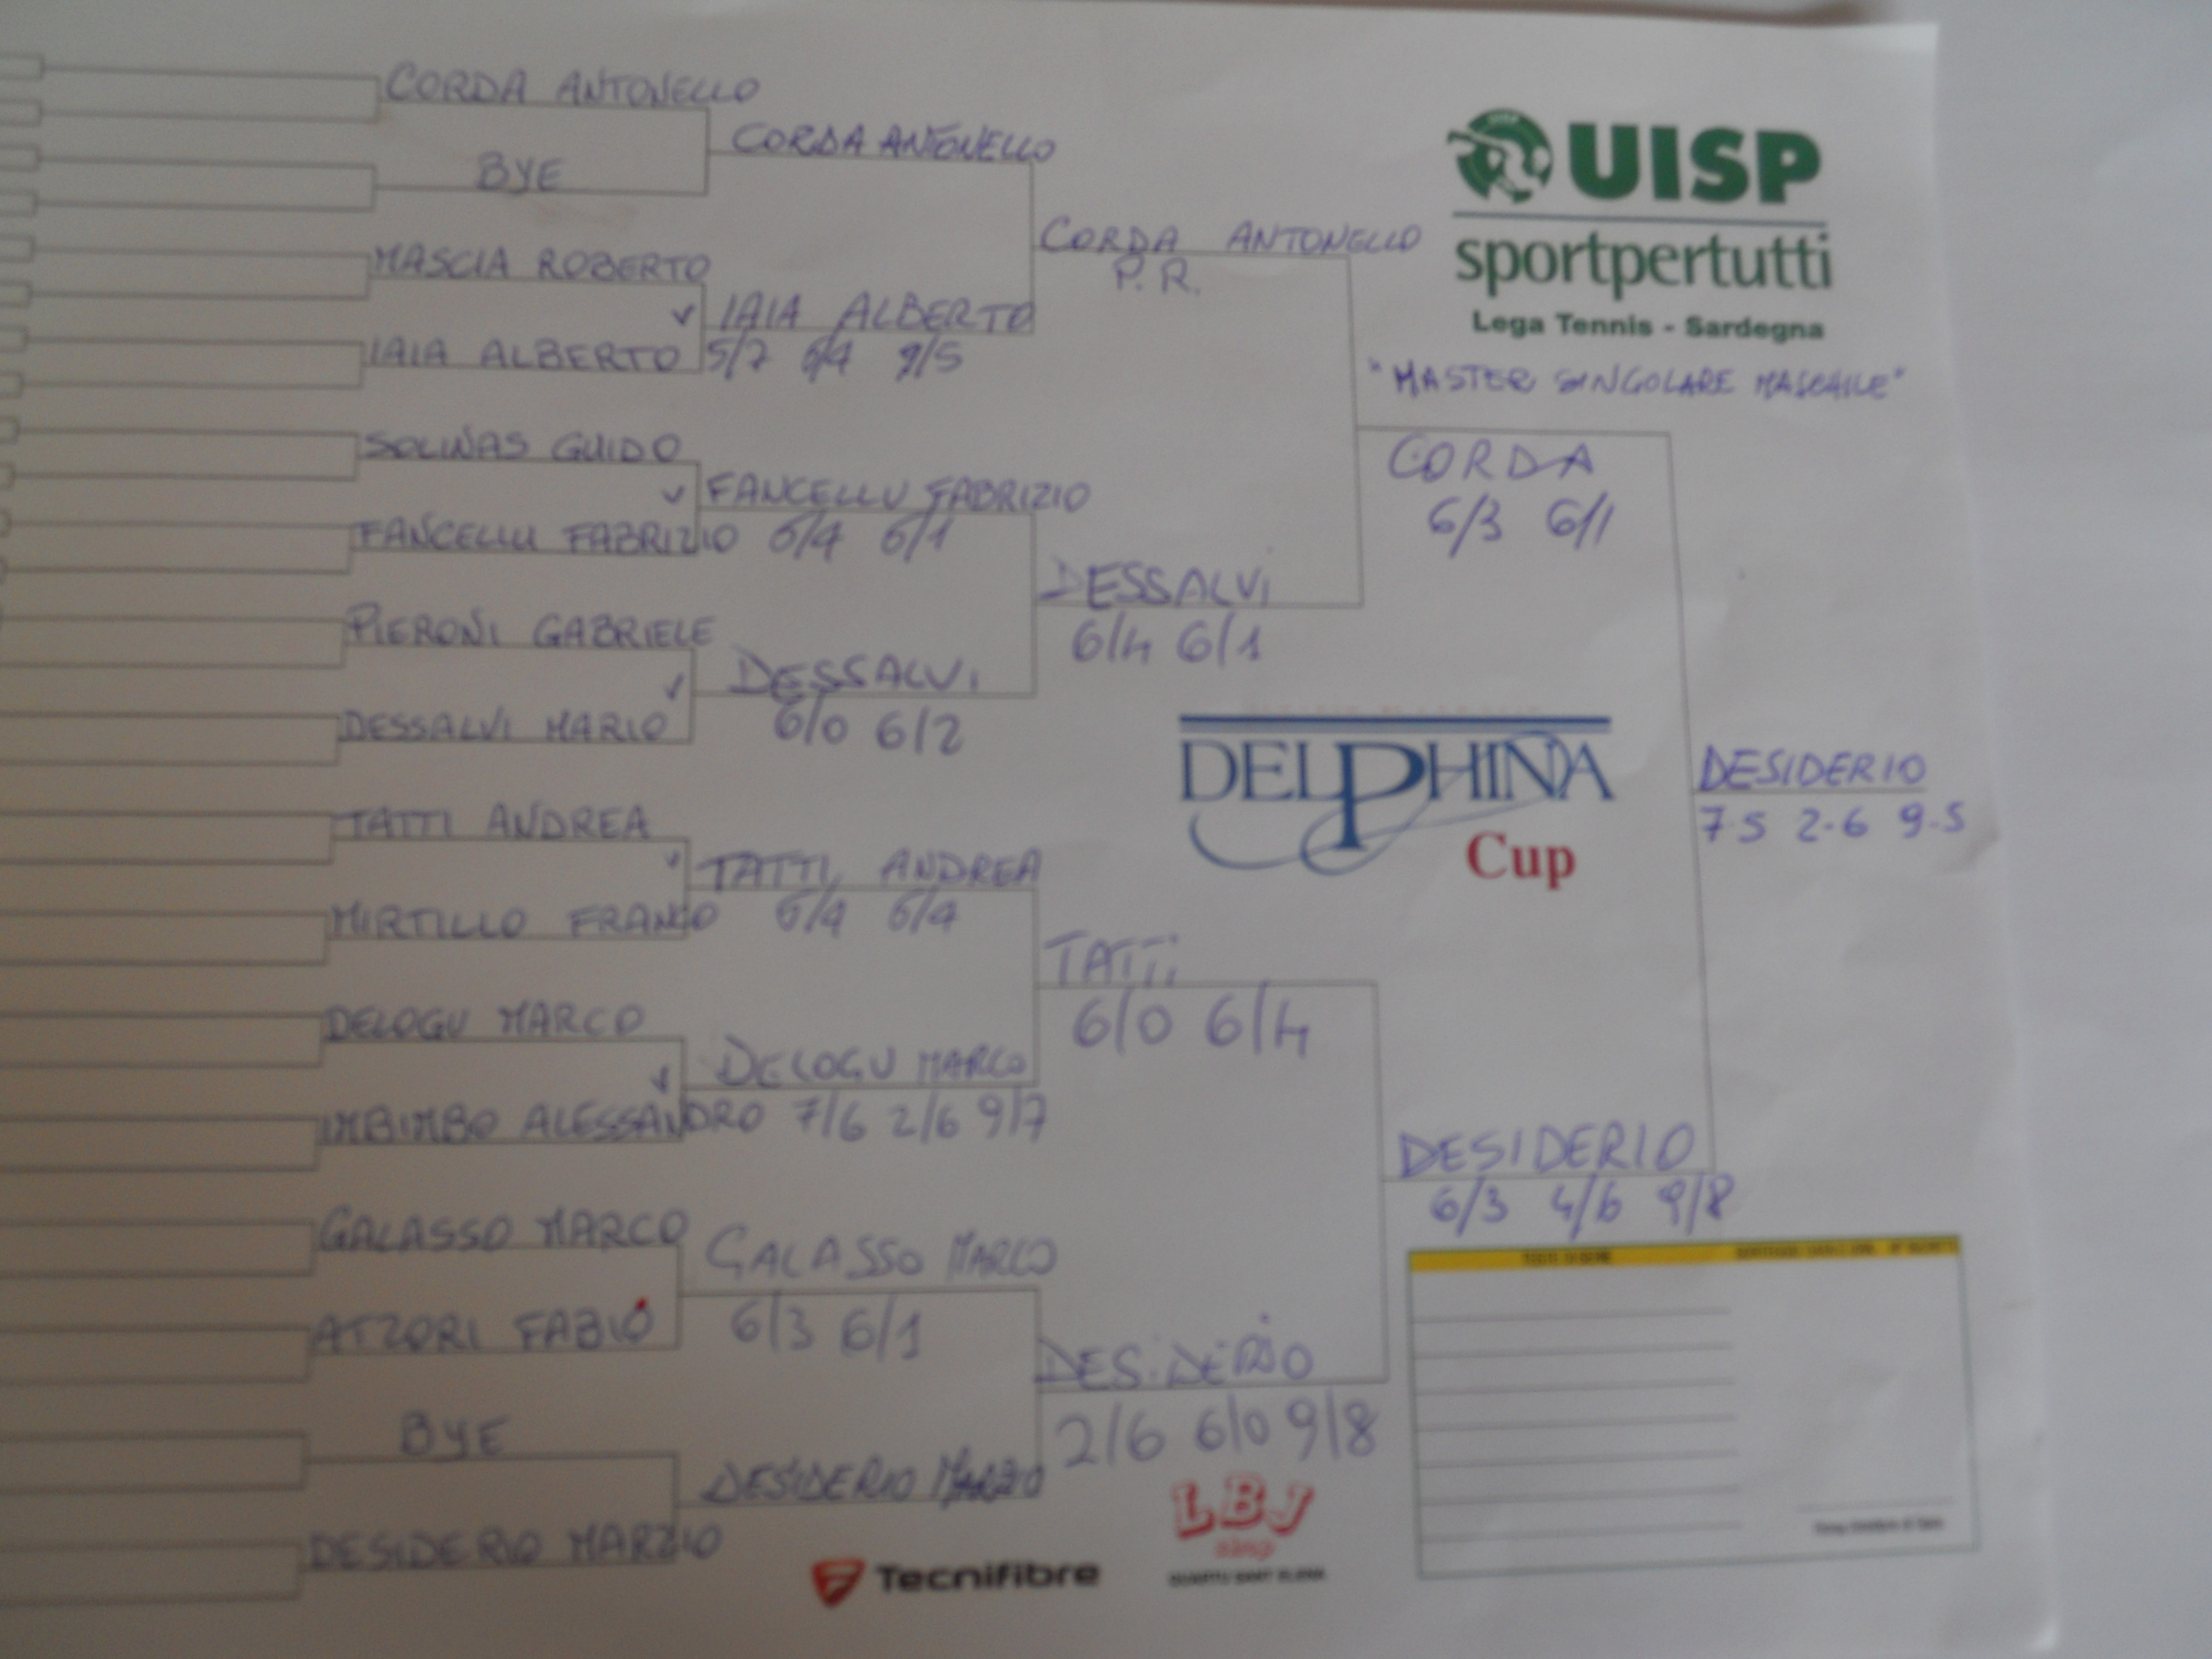 CORDA ANTONELLO
BYE
MASCIA ROBERTO
IAIA ALBERTO
SOLINAS GUIDO
FANCELLU FABRIZIO
PIERONI GABRIELE
DESSALVI MARIO
TATTI ANDREA
MIRTILLO FRANCO
DELOGU MARCO
IMBIMBO ALESSANDRO
GALASSO MARCO
ATZORI FABIO
BYE
DESIDERIO MARZIO
CORDA ANTONELLO
IAIA ALBERTO
5/7 6/4 9/5
FANCELLU FABRIZIO
6/4 6/1
DESSALVI
6/0 6/2
TATTI ANDREA
6/4 6/4
DELOGU MARCO
7/6 2/6 9/7
GALASSO MARCO
6/3 6/1
DESIDERIO MARZIO
CORDA ANTONELLO
P.R.
DESSALVI
6/4 6/1
TATTI
6/0 6/4
DESIDERIO
2/6 6/0 9/8
CORDA
6/3 6/1
DESIDERIO
6/3 4/6 9/8
DESIDERIO
7-5 2-6 9-5
UISP
sportpertutti
Lega Tennis - Sardegna
"MASTER SINGOLARE MASCHILE"
DELPHINA
Cup
TESTE DI SERIE
Tecnifibre
LBJ
shop
QUARTU SANT'ELENA